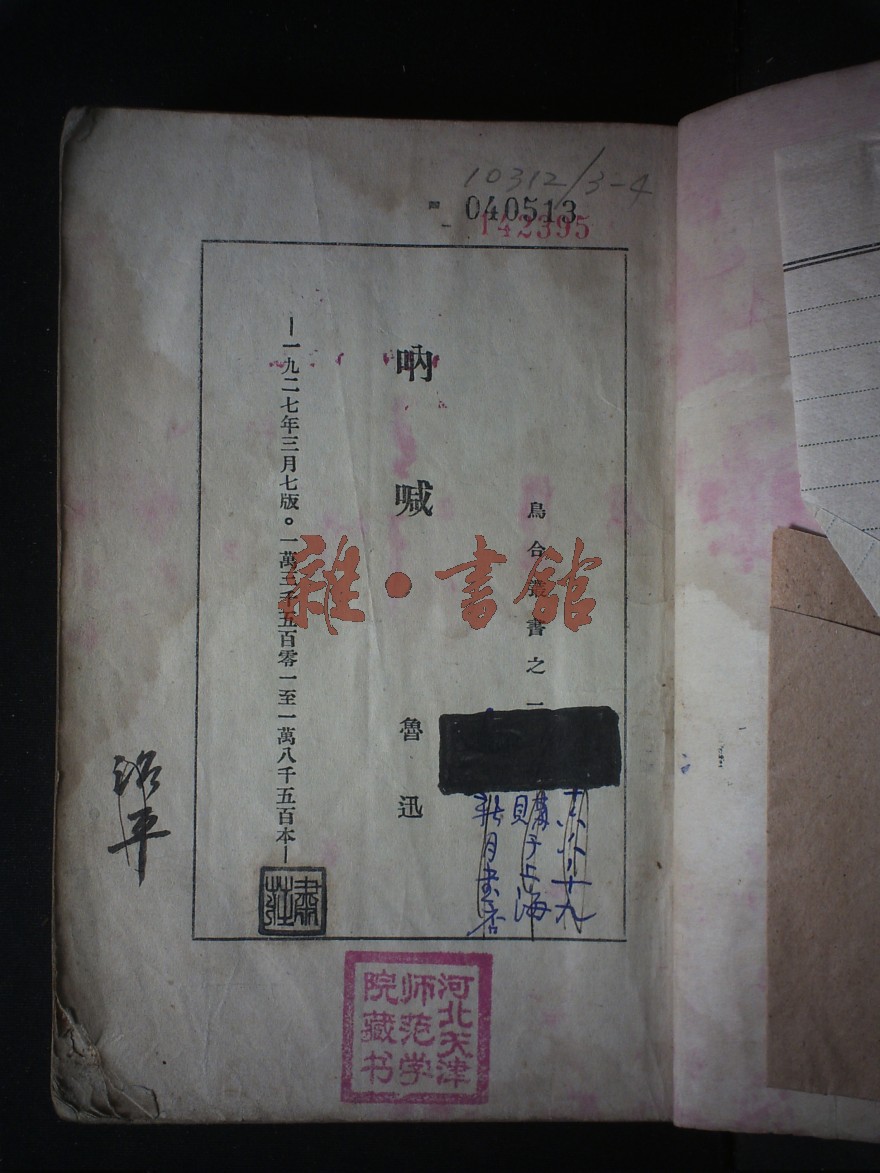 10312/3-4
040513
142395
烏合叢書之一
購于上海
新月书店
吶喊
魯迅
—一九二七年三月七版。一萬三千五百零一至一萬八千五百本—
雜·書館
河北天津
师范学
院藏书